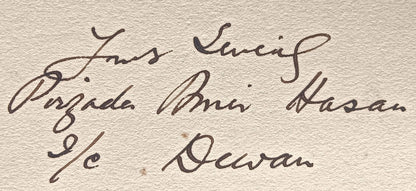 Yours Loving
Pirzada Amir Hasan
I/c Dewan